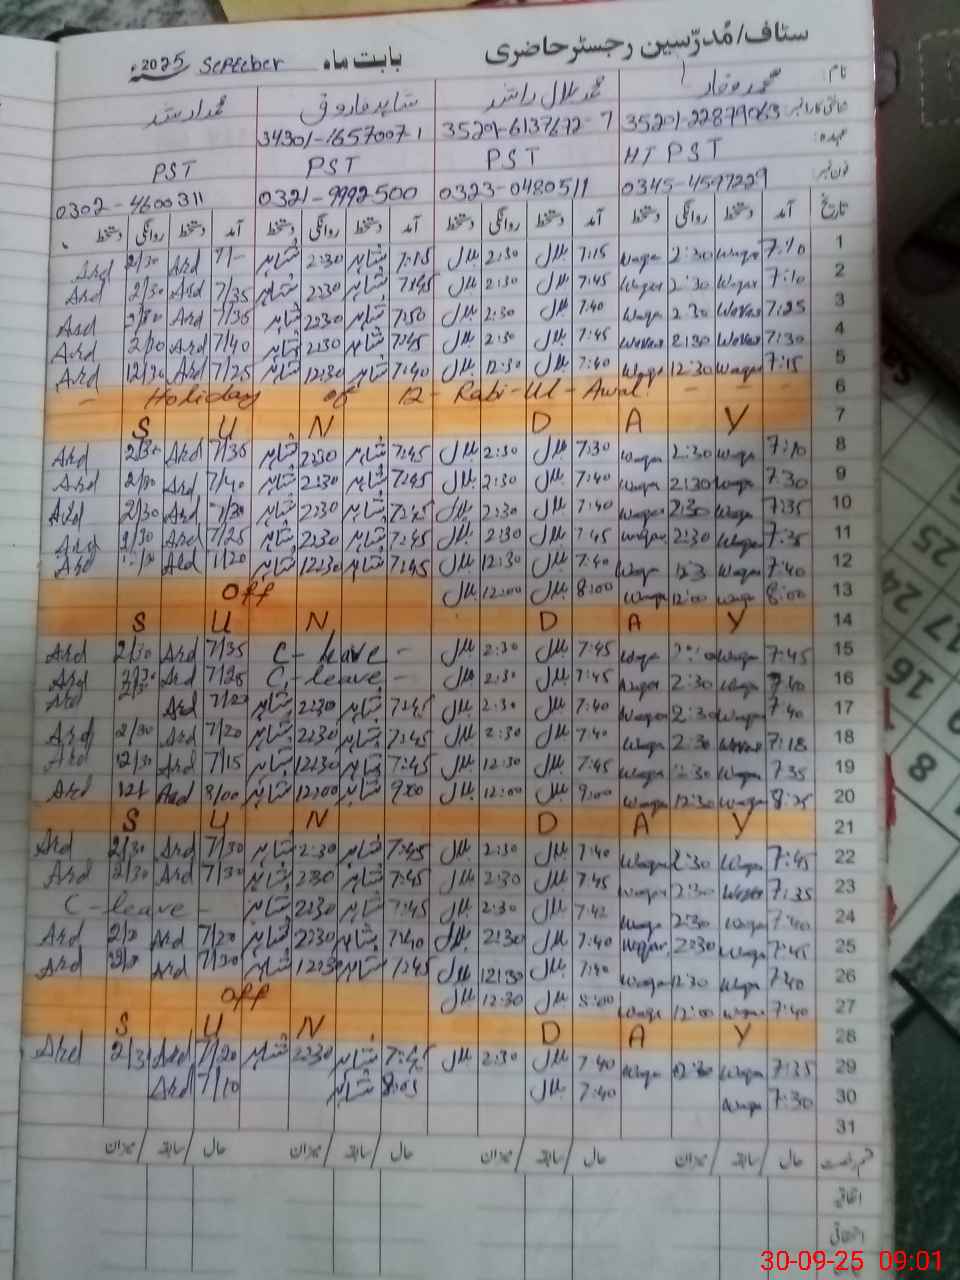 سٹاف/مُدرّسین رجسٹر حاضری بابت ماہ September 2025
نام محمد وقار محمد بلال راشد شاہد فاروق محمد ارشد
35201-22879063 35201-6137672-7 34301-1657007-1
عہدہ HT PST PST PST PST
فون نمبر 0345-4597229 0323-0480511 0321-9992500 0302-4600311
تاریخ آمد دستخط روانگی دستخط آمد دستخط روانگی دستخط آمد دستخط روانگی دستخط آمد دستخط روانگی دستخط
1 7:10 Waqar 2:30 Waqar 7:15 بلال 2:30 بلال 7:15 شاہد 2:30 شاہد Ard 2/30 Ard
2 7:10 Waqar 2:30 Waqar 7:45 بلال 2:30 بلال 7:45 شاہد 2:30 شاہد 7/35 Ard 2/30 Ard
3 7:25 Waqar 2:30 Waqar 7:40 بلال 2:30 بلال 7:50 شاہد 2:30 شاہد 7/35 Ard 2/30 Ard
4 7:30 Waqar 2:30 Waqar 7:45 بلال 2:30 بلال 7:45 شاہد 2:30 شاہد 7/40 Ard 2/30 Ard
5 7:15 Waqar 12:30 Waqar 7:40 بلال 12:30 بلال 7:40 شاہد 12:30 شاہد 7/25 Ard 12/30 Ard
6 - Holiday of 12 - Rabi-Ul-Awal - - -
7 S U N D A Y
8 7:10 Waqar 2:30 Waqar 7:30 بلال 2:30 بلال 7:45 شاہد 2:30 شاہد 7/35 Ard 2/30 Ard
9 7:30 Waqar 2:30 Waqar 7:40 بلال 2:30 بلال 7:45 شاہد 2:30 شاہد 7/40 Ard 2/30 Ard
10 7:35 Waqar 2:30 Waqar 7:40 بلال 2:30 بلال 7:45 شاہد 2:30 شاہد Ard 2/30 Ard
11 7:35 Waqar 2:30 Waqar 7:45 بلال 2:30 بلال 7:45 شاہد 2:30 شاہد 7/25 Ard 2/30 Ard
12 7:40 Waqar 12:3 Waqar 7:40 بلال 12:30 بلال 7:45 شاہد 12:30 شاہد Ard Ard
13 8:00 Waqar 12:00 Waqar 8:00 بلال 12:00 بلال Off
14 S U N D A Y
15 7:45 Waqar Waqar 7:45 بلال 2:30 بلال C-leave - 7/35 Ard 2/30 Ard
16 7:40 Waqar 2:30 Waqar 7:45 بلال 2:30 بلال C-leave - 7/25 Ard 2/30 Ard
17 7:40 Waqar 2:30 Waqar 7:40 بلال 2:30 بلال 7:45 شاہد 2:30 شاہد 7/20 Ard Ard
18 7:18 Waqar 2:30 Waqar 7:40 بلال 2:30 بلال 7:45 شاہد 2:30 شاہد 7/20 Ard 2/30 Ard
19 7:35 Waqar 12:30 Waqar 7:45 بلال 12:30 بلال 7:45 شاہد 12:30 شاہد 7/15 Ard 12/30 Ard
20 8:25 Waqar 12:30 Waqar 9:00 بلال 12:00 بلال 9:00 شاہد 12:00 شاہد 8/00 Ard Ard
21 S U N D A Y
22 7:45 Waqar 2:30 Waqar 7:40 بلال 2:30 بلال 7:45 شاہد 2:30 شاہد 7/30 Ard 2/30 Ard
23 7:35 Waqar 2:30 Waqar 7:45 بلال 2:30 بلال 7:45 شاہد 2:30 شاہد 7/30 Ard 2/30 Ard
24 7:40 Waqar 2:30 Waqar 7:42 بلال 2:30 بلال 7:45 شاہد 2:30 شاہد C-leave -
25 7:45 Waqar 2:30 Waqar 7:40 بلال 2:30 بلال 7:40 شاہد 2:30 شاہد 7/20 Ard Ard
26 7:40 Waqar 12:30 Waqar 7:40 بلال 12:30 بلال 7:45 شاہد 12:30 شاہد 7/20 Ard Ard
27 7:40 Waqar 12:00 Waqar 8:00 بلال 12:30 بلال Off
28 S U N D A Y
29 7:35 Waqar 2:30 Waqar 7:40 بلال 2:30 بلال 7:45 شاہد 2:30 شاہد 7/20 Ard 2/3 Ard
30 7:30 Waqar 7:40 بلال 8:05 شاہد 7/10 Ard
31
قسم رخصت حال / سابقہ / میزان حال / سابقہ / میزان حال / سابقہ / میزان حال / سابقہ / میزان
اتفاقیہ
25
24
17
16
9
8
30-09-25 09:01